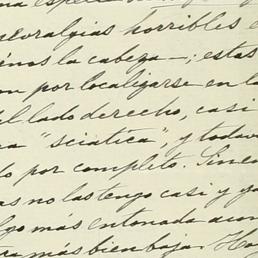 na espe
euralgias horribles e
énos la cabeza—; estas
on por localizarse en la
el lado derecho, casi
na "sciatica", y todaví
do por completo. Sínco
as no las tengo casi y ya
lgo más entonada aun
tra más bien baja. Ha